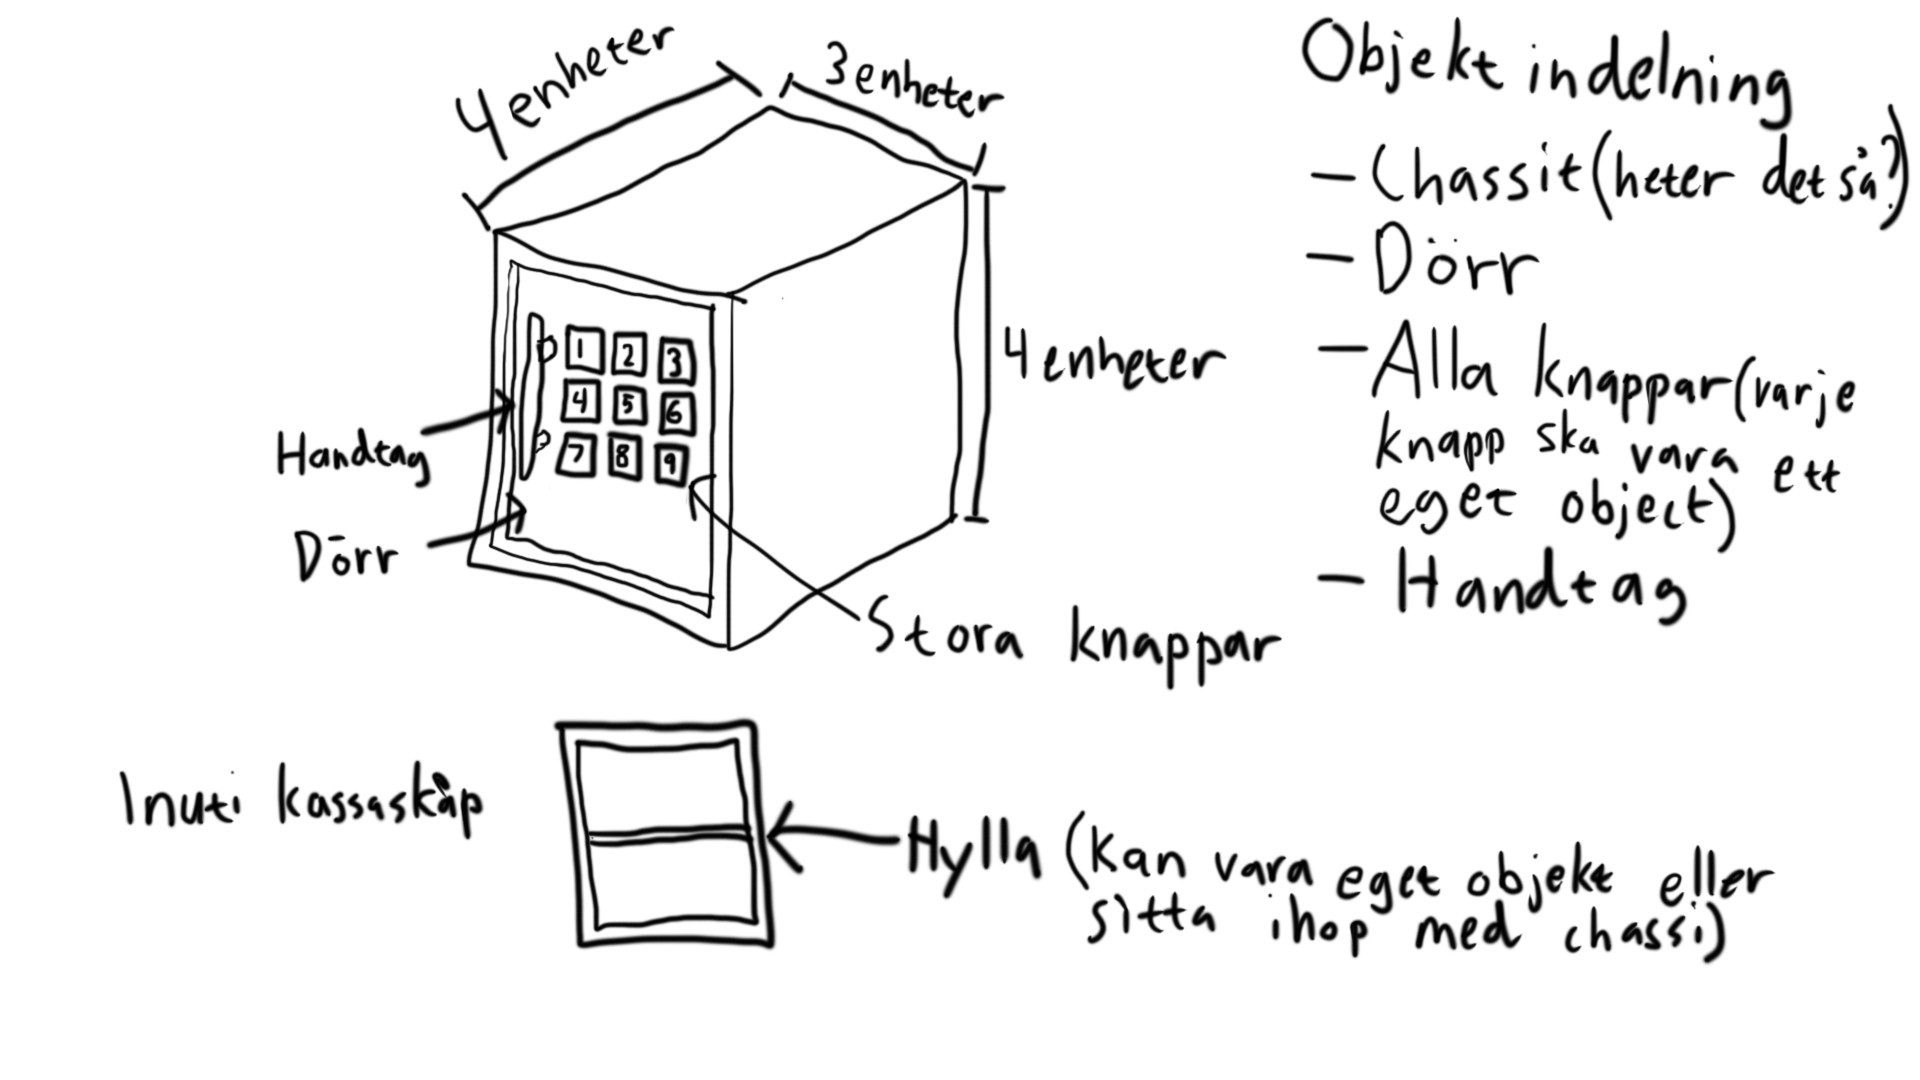 4 enheter
3 enheter
4 enheter
1 2 3
4 5 6
7 8 9
Handtag
Dörr
Stora knappar
Objekt indelning
- Chassit (heter det så?)
- Dörr
- Alla knappar (varje
knapp ska vara ett
eget object)
- Handtag
Inuti kassaskåp
Hylla (kan vara eget objekt eller
sitta ihop med chassi)